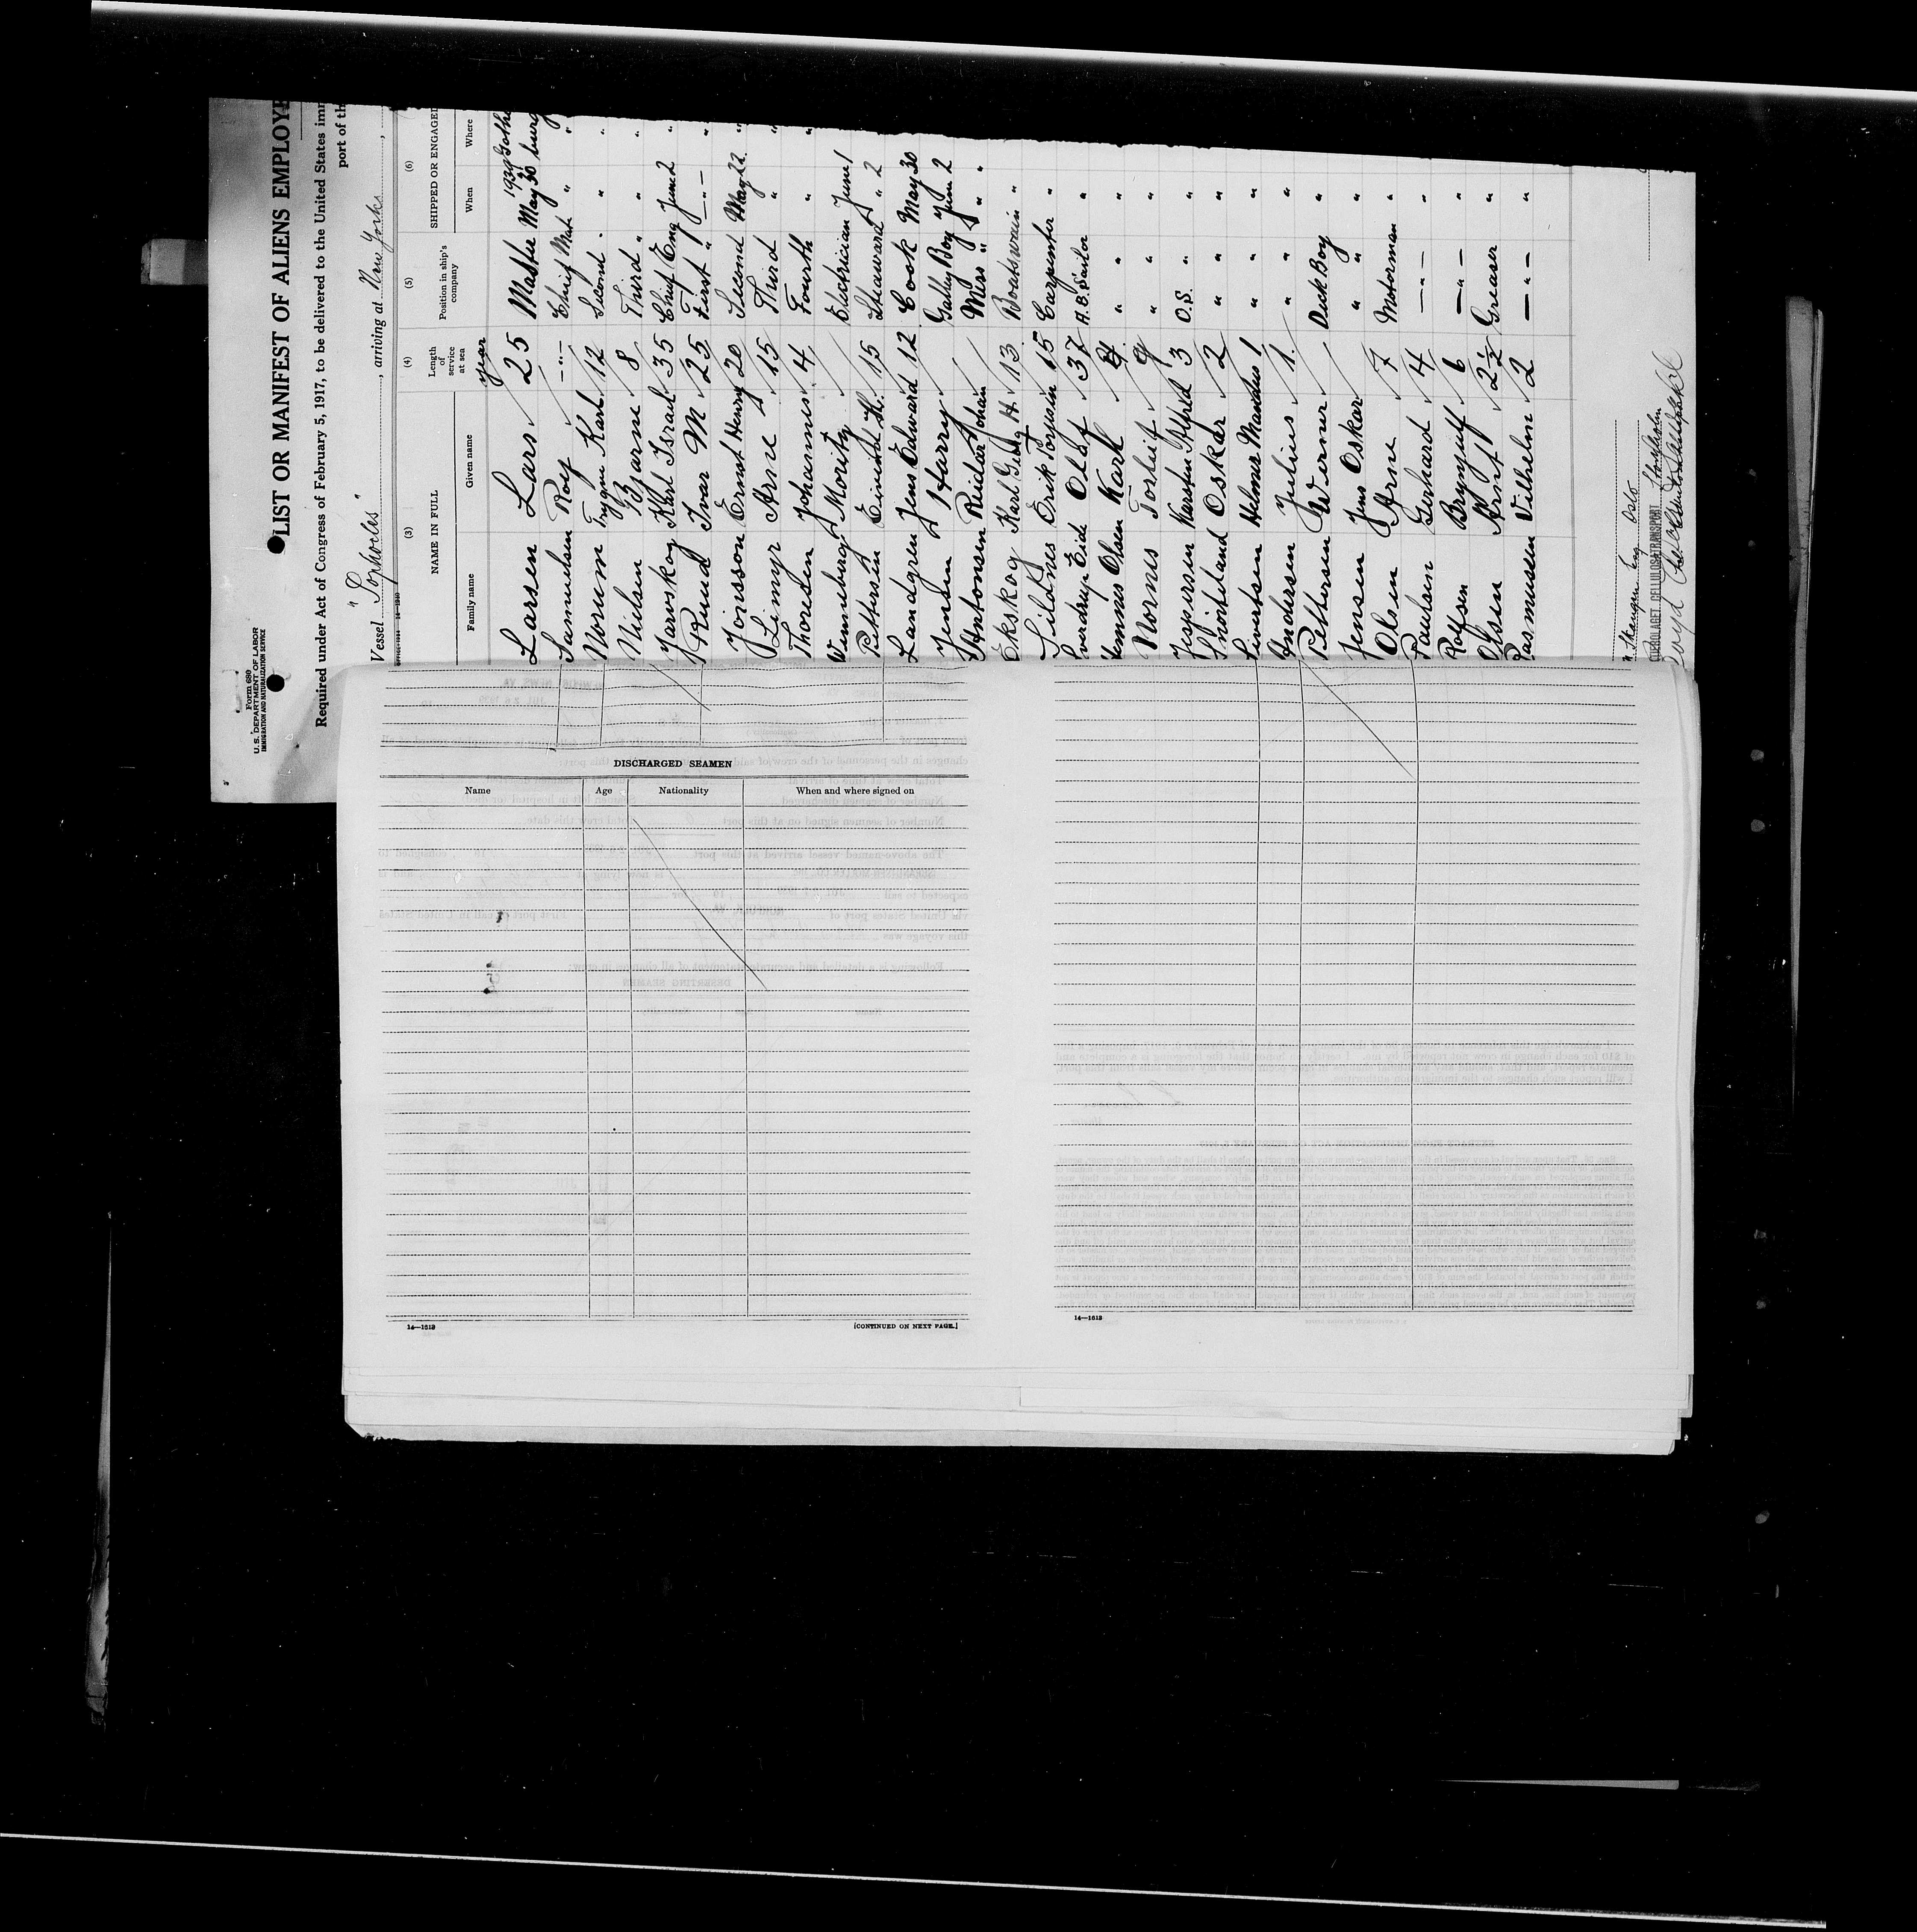 Form 680
U. S. DEPARTMENT OF LABOR
IMMIGRATION AND NATURALIZATION SERVICE
LIST OR MANIFEST OF ALIENS EMPLOY
Required under Act of Congress of February 5, 1917, to be delivered to the United States imm
port of th
Vessel "Sophocles", arriving at New York
(3) (4) (5) (6)
NAME IN FULL Length of service at sea Position in ship's company SHIPPED OR ENGAGED
Family name Given name When Where
year 1939
Larsen Lars 25 Master May 30
Samuelsen Roy -"- Chief Mat " "
Norum Trygve Karl 12 Second " " "
Nielsen Bjarne 8 Third " " "
Jaruskog Karl Israel 35 Chief Eng June 2 "
Ruud Ivar M 25 First " -"- "
Jonsson Ernst Henry 20 Second May 22 "
Limyr Arne 15 Third " "
Thoresen Johannes 4 Fourth " "
Winnberg Moritz Electrician June 1
Pettersen Eivind H. 15 Steward " 2
Landgren Jens Edward 12 Cook May 30
Jensen Harry Gally Boy June 2
Antonsen Reidar Johan Mess " " "
Ekskog Karl Georg H. 13 Boatswain "
Sildnes Erik Torstein 15 Carpenter "
Eide Olaf 37 A.B. Sailor "
Olsen Karl " " "
Nornes Torleif 9 " " "
Jespersen Karsten Alfred 3 O.S. " "
Oskar 2 " " "
Sivertsen Helmer Mandus 1 " " "
Andersen Julius 1. " " "
Pettersen Werner Deck Boy "
Jensen Jens Oskar " " "
Olsen Arne 7 Motorman "
Paulsen Gerhard 4 -"- "
Rolfsen Brynjulf 6 -"- "
Olsen Arnt 2½ Greaser "
Rasmussen Vilhelm 2 -"- "
Skaugen Eng Oslo
CELLULOSATRANSPORT Stockholm
DISCHARGED SEAMEN
Name Age Nationality When and where signed on
14—1613 [CONTINUED ON NEXT PAGE.]
14—1613